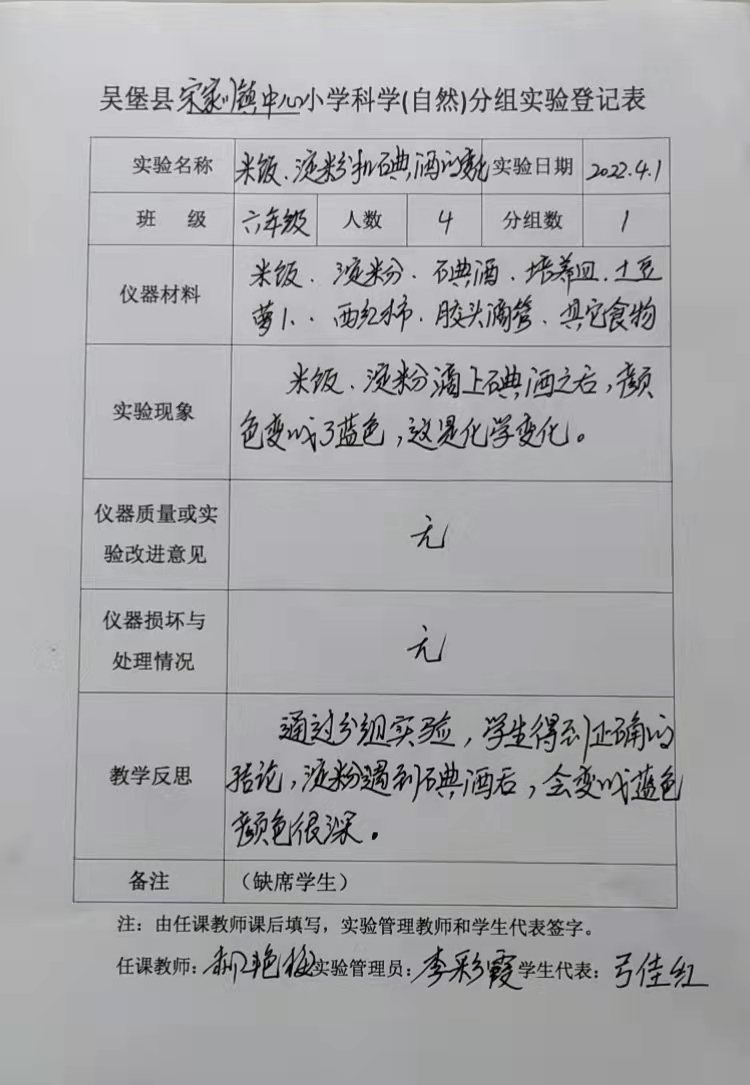 吴堡县宋家川镇中心小学科学(自然)分组实验登记表
实验名称 米饭、淀粉和碘酒的变化 实验日期 2022.4.1
班 级 六年级 人数 4 分组数 1
仪器材料
米饭、淀粉、碘酒、培养皿、土豆
萝卜、西红柿、胶头滴管、其它食物
实验现象
米饭、淀粉滴上碘酒之后，颜
色变成了蓝色，这是化学变化。
仪器质量或实
验改进意见
无
仪器损坏与
处理情况
无
教学反思
通过分组实验，学生得到正确的
结论，淀粉遇到碘酒后，会变成蓝色
颜色很深。
备注 （缺席学生）
注：由任课教师课后填写，实验管理教师和学生代表签字。
任课教师：艳 实验管理员：李彩霞 学生代表：弓佳红